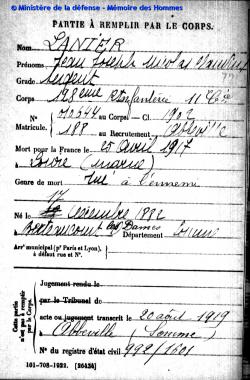 © Ministère de la défense - Mémoire des Hommes
PARTIE À REMPLIR PAR LE CORPS.
Nom LANIER
Prénoms Jean Joseph Nicolas
Grade Sergent
Corps 128ème Rt Infanterie 11e Cie
N° 010544 au Corps. — Cl. 1902
Matricule. 188 au Recrutement Abbeville
Mort pour la France le 25 avril 1917
à (Marne)
Genre de mort tué à l'ennemi
17
Né le décembre 1882
à les Dames Département Somme
Arrt municipal (pr Paris et Lyon),
à défaut rue et N°.
Cette partie
n'est pas à remplir
par le Corps.
Jugement rendu le
par le Tribunal de
acte ou jugement transcrit le 20 août 1919
à Abbeville (Somme)
N° du registre d'état civil 992/1601
101-708-1922. [26434]